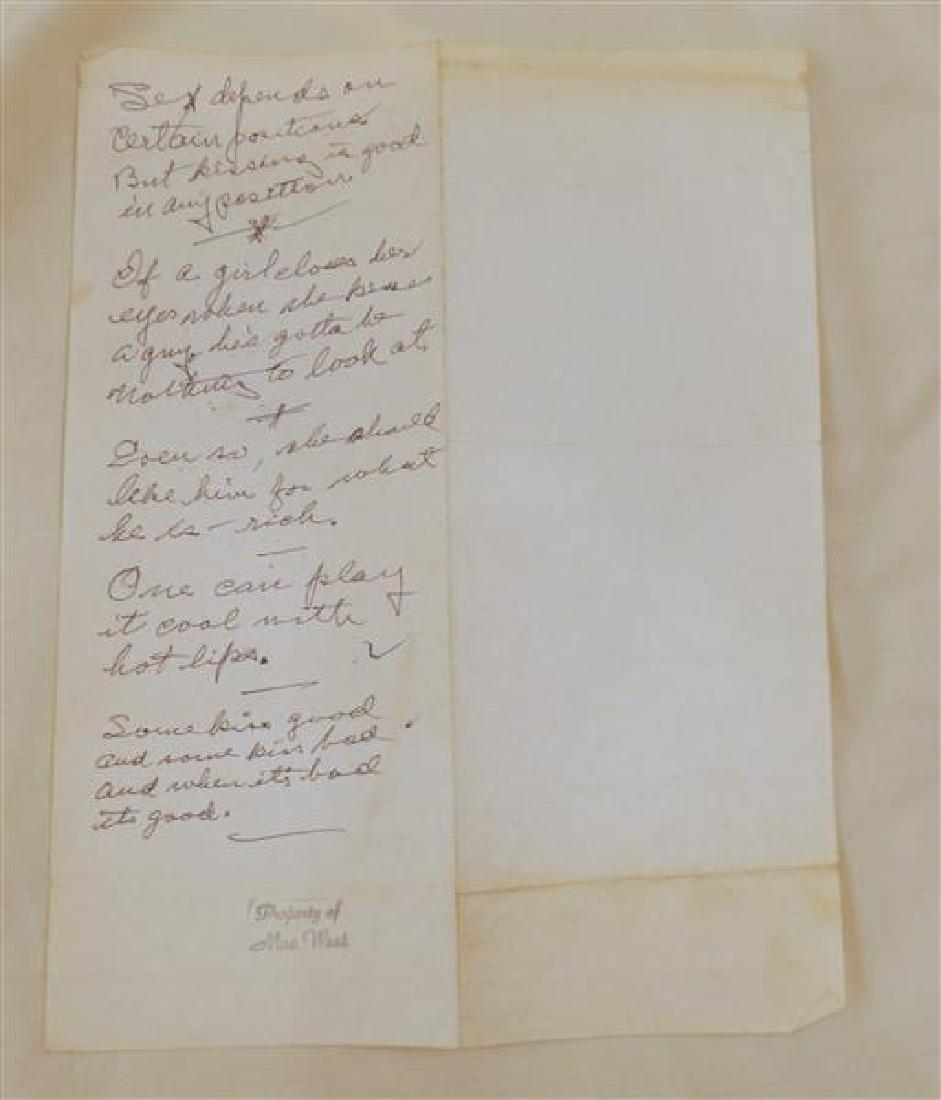 Sex depends on
certain positions
But kissing is good
in any position.
If a girl closes her
eyes when she kisses
a guy, he's gotta be
nothing to look at.
Even so, she should
like him for what
he is – rich.
One can play
it cool with
hot lips.
Some kiss good
and some kiss bad.
and when it's bad
it's good.
Property of
Mae West